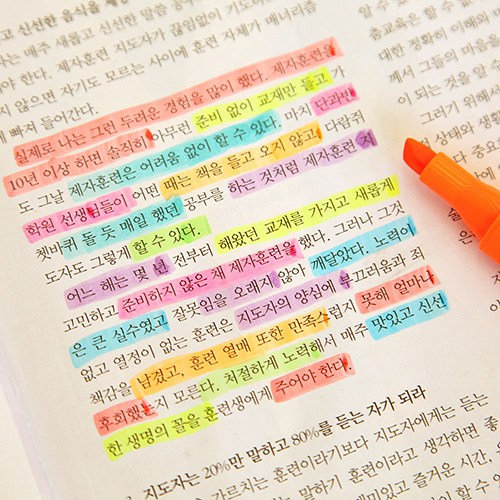 고 신선한 음식을
는 매주 새롭고 신선한 말씀
야 한다. 제자훈련 지도자가 끊임없이 기도하
지 않으면 자기도 모르는 사이에 훈련 자체가 매너리즘
빠져 들어간다.
실제로 나는 그런 두려운 경험을 많이 했다. 제자훈련을
10년 이상 하면 솔직히 아무런 준비 없이 교재만 들고 가
도 그날 제자훈련은 어려움 없이 할 수 있다. 마치 단과반
학원 선생님들이 어떤 때는 책을 들고 오지 않고 다람쥐
쳇바퀴 돌 듯 매일 했던 공부를 하는 것처럼 제자훈련 지
도자도 그렇게 할 수 있다.
어느 해는 몇 년 전부터 해왔던 교재를 가지고 새롭게
고민하고 준비하지 않은 채 제자훈련을 했다. 그러나 그것
은 큰 실수였고 잘못임을 오래지 않아 깨달았다. 노력이
없고 열정이 없는 훈련은 지도자의 양심에 부끄러움과 죄
책감을 남겼고, 훈련 열매 또한 만족스럽지 못해 얼마나
후회했는지 모른다. 처절하게 노력해서 매주 맛있고 신선
한 생명의 꼴을 훈련생에게 주어야 한다.
지도자는 20%만 말하고 80%를 듣는 자가 되라
가르치는 훈련이라기보다 지도자에게는 듣는
말하기 훈련이라고 생각하면 좋
즐거운 시간,
대한 정확히 이해와
께서 그들의 마음
이 되는 것을 알 수
그러기 위해